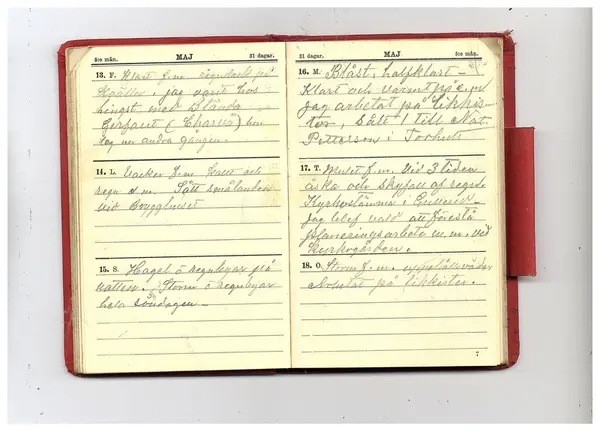 5:e mån. MAJ 31 dagar.
13. F. Klart f.m. regnskurar på
kvällen, jag varit hos
hingst med Blända
Gerfaut (Charis) hon
tog ner andra gången.
14. L. Vacker f.m. kallt och
regn e.m. Sått
vid Brygghuset
15. S. Hagel & regnbyar på
natten. Storm & regnbyar
hela söndagen –
31 dagar. MAJ 5:e mån.
16. M. Blåst, halfklart –
Klart och varmt på e.m.
Jag arbetat på likkis-
tor, sålt 1 till Nat.
Petterson i Torhult
17. T. Mulet f.m. Vid 3 tiden
åska och skyfall af regn.
Kyrkostämma i
Jag blef vald att förestå
planeringsarbete m.m. vid
Kyrkogården.
18. O. Storm f.m. uppehållsväder
Arbetat på likkistor.
7